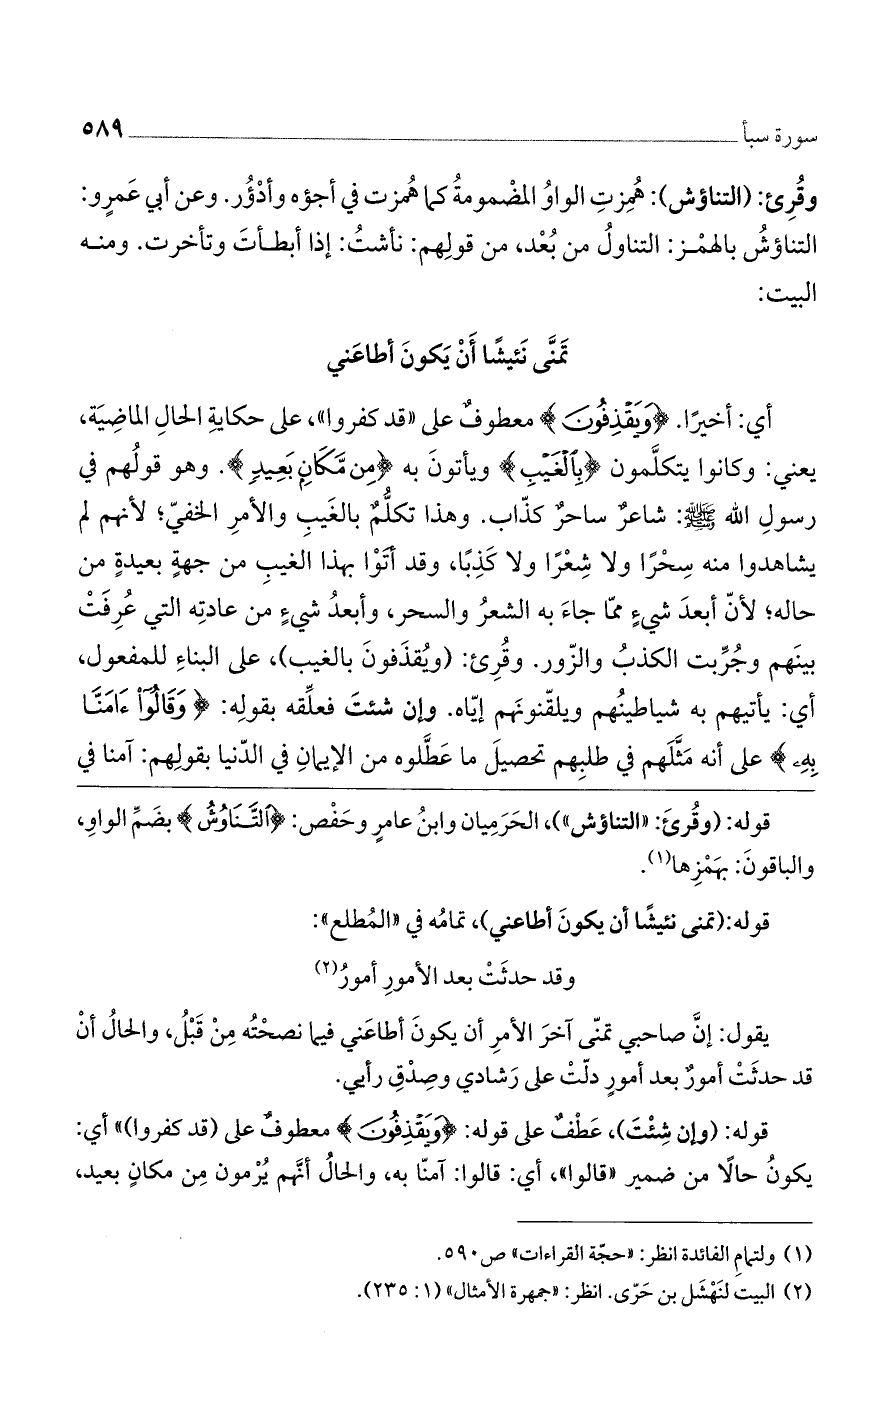 سورة سبأ ٥٨٩
وقُرِئ: (التناؤش): هُمِزتِ الواوُ المضْمومةُ كما هُمزت في أجؤه وأدْؤُر. وعن أبي عَمرٍو:
التناؤشُ بالهمْـز: التناولُ من بُعْد، من قولِهم: نأشتُ: إذا أبطـأتَ وتأخرت. ومنـه
البيت:
تَمَنَّى نَئيشًا أَنْ يَكونَ أطاعَني
أي: أخيرًا. ﴿وَيَقْذِفُونَ﴾ معطوفٌ على «قد كفروا»، على حكايةِ الحالِ الماضِيَة،
يعني: وكانوا يتكلَّمون ﴿بِٱلْغَيْبِ﴾ ويأتونَ به ﴿مِن مَّكَانٍۭ بَعِيدٍ﴾. وهو قولُهم في
رسولِ الله ﷺ: شاعرٌ ساحرٌ كذّاب. وهذا تكلُّمٌ بالغَيبِ والأمرِ الخفيّ؛ لأنهم لم
يشاهدوا منه سِحْرًا ولا شِعْرًا ولا كَذِبًا، وقد أتَوْا بهذا الغيبِ من جهةٍ بعيدةٍ من
حاله؛ لأنّ أبعدَ شيءٍ ممّا جاءَ به الشعرُ والسحر، وأبعدُ شيءٍ من عادتِه التي عُرِفَتْ
بينَهم وجُرِّبت الكذبُ والزّور. وقُرِئ: (ويُقذَفونَ بالغيب)، على البناءِ للمفعول،
أي: يأتيهم به شياطينُهم ويلقّنونَهم إيّاه. وإن شئتَ فعلِّقه بقولِه: ﴿وَقَالُوٓا۟ ءَامَنَّا
بِهِۦ﴾ على أنه مَثَّلَهم في طلبِهم تحصيلَ ما عَطَّلوه من الإيمانِ في الدّنيا بقولِهم: آمنا في
قوله: (وقُرئَ: «التناؤش»)، الحَرَمِيان وابنُ عامرٍ وحَفْص: ﴿ٱلتَّنَاوُشُ﴾ بضَمِّ الواوِ،
والباقونَ: بهَمْزِها(١).
قوله:(تمنى نئيشًا أن يكونَ أطاعني)، تمامُه في «المُطلع»:
وقد حدثَتْ بعد الأمورِ أمورُ(٢)
يقول: إنَّ صاحبي تمنّى آخرَ الأمرِ أن يكونَ أطاعَني فيما نصحْتُه مِنْ قَبْلُ، والحالُ أنْ
قد حدثَتْ أمورٌ بعد أمورٍ دلّتْ على رَشادي وصِدْقِ رأيي.
قوله: (وإن شِئْتَ)، عَطْفٌ على قوله: ﴿وَيَقْذِفُونَ﴾ معطوفٌ على (قد كفروا)» أي:
يكونُ حالًا من ضمير «قالوا»، أي: قالوا: آمنّا به، والحالُ أنَّهم يُرْمون مِن مكانٍ بعيد،
(١) ولتمامِ الفائدة انظر: «حجّة القراءات» ص٥٩٠.
(٢) البيت لنَهْشَل بن حَرّى. انظر: «جمهرة الأمثال» (١: ٢٣٥).